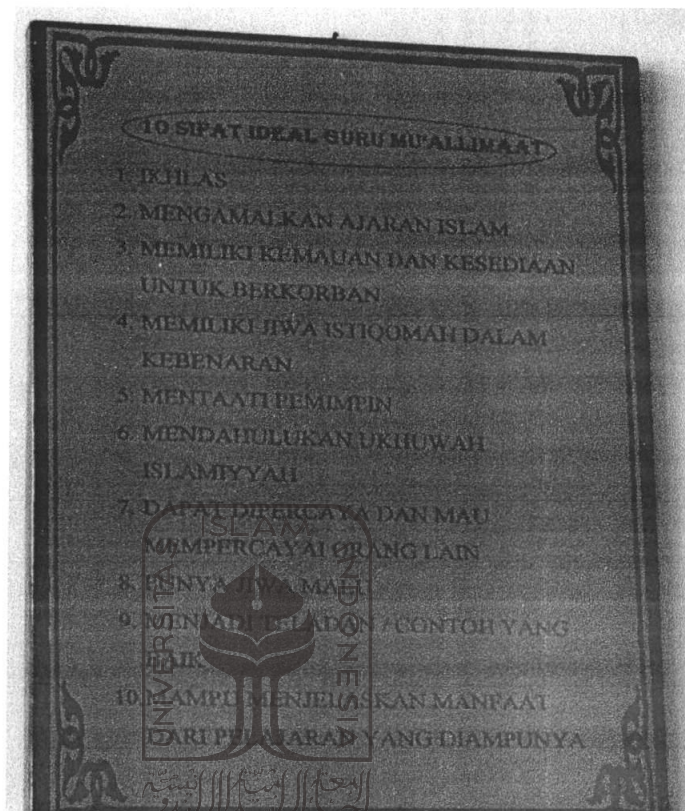 10 SIFAT IDEAL GURU MU'ALLIMAAT
1. IKHLAS
2. MENGAMALKAN AJARAN ISLAM
3. MEMILIKI KEMAUAN DAN KESEDIAAN
UNTUK BERKORBAN
4. MEMILIKI JIWA ISTIQOMAH DALAM
KEBENARAN
5. MENTAATI PEMIMPIN
6. MENDAHULUKAN UKHUWAH
ISLAMIYYAH
7. DAPAT DIPERCAYA DAN MAU
MEMPERCAYAI ORANG LAIN
8. PUNYA JIWA
9. MENJADI TELADAN / CONTOH YANG
BAIK
10. MAMPU MENJELASKAN MANFAAT
DARI PELAJARAN YANG DIAMPUNYA
ISLAM
UNIVERSITAS
INDONESIA